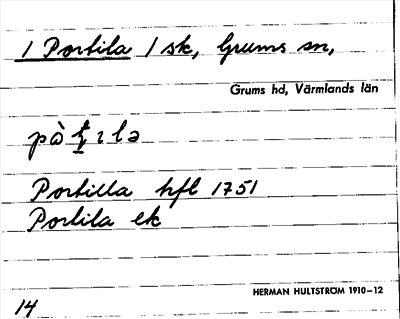 1 Portila 1 sk, Grums sn,
Grums hd, Värmlands län
Portilla hfl 1751
Portila ek
HERMAN HULTSTRÖM 1910–12
14